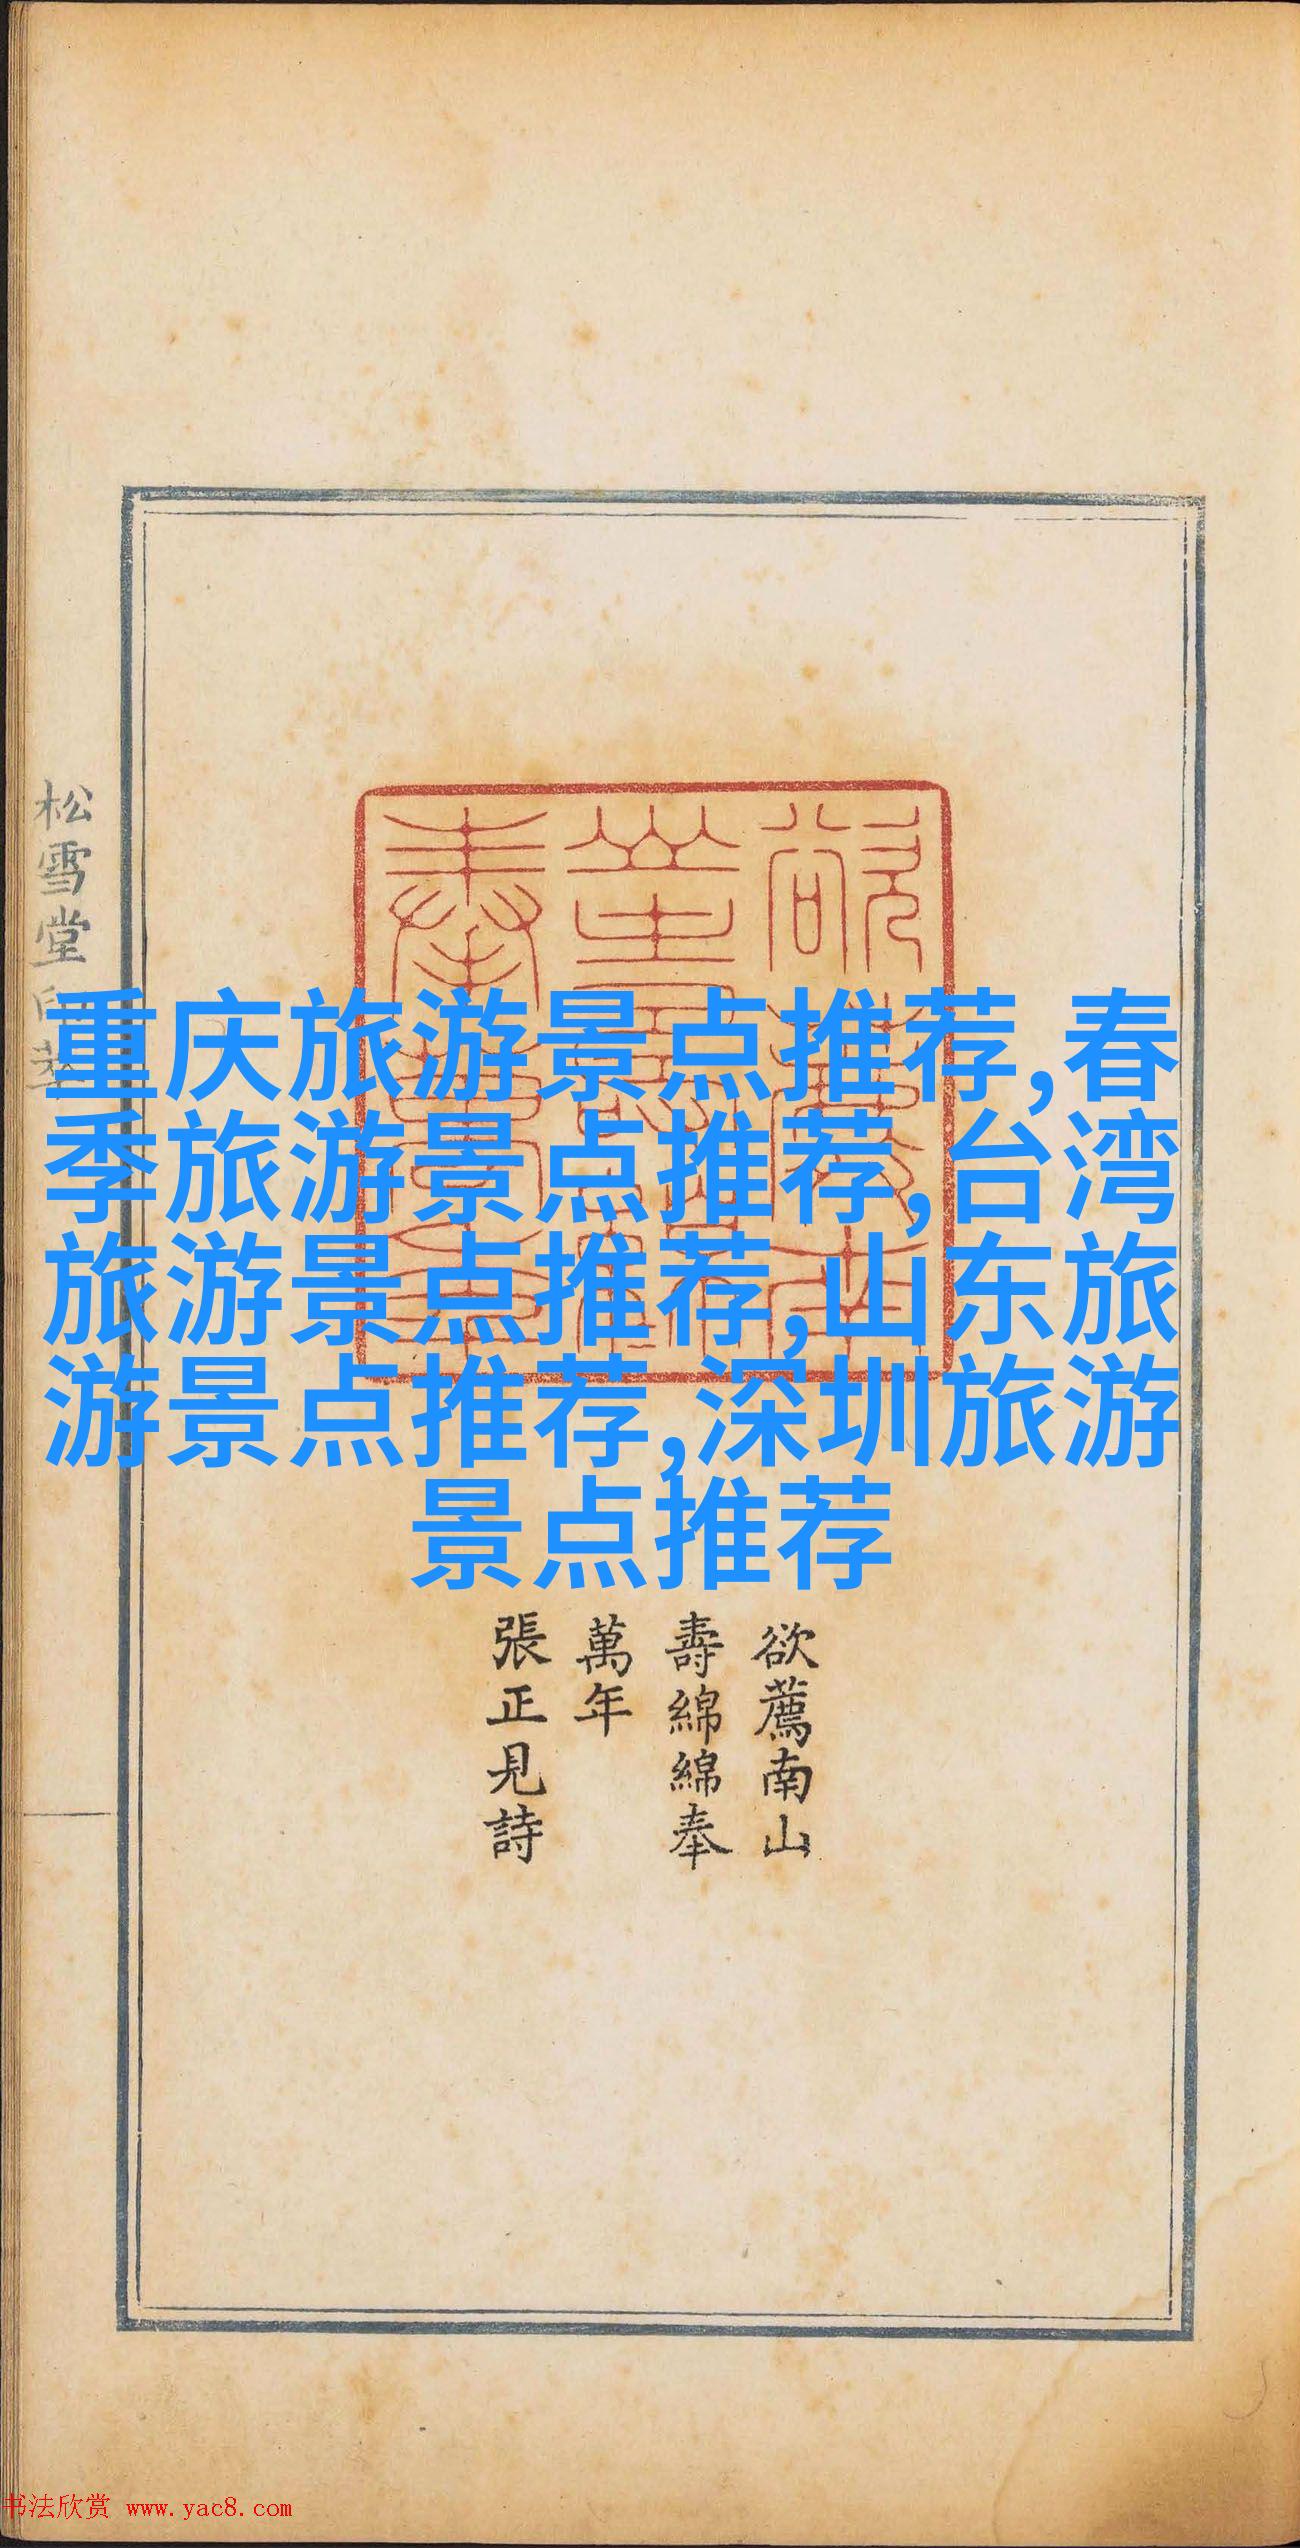 松雪堂印萃
重庆旅游景点推荐,春
季旅游景点推荐,台湾
旅游景点推荐,山东旅
游景点推荐,深圳旅游
景点推荐
欲薦南山
壽綿綿奉
萬年
張正見詩
书法欣赏 www.yac8.com